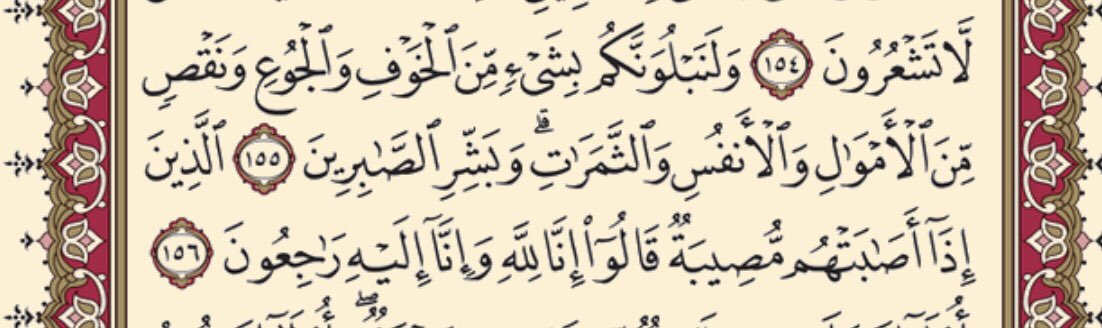 لَّا تَشْعُرُونَ ١٥٤ وَلَنَبْلُوَنَّكُم بِشَىْءٍ مِّنَ ٱلْخَوْفِ وَٱلْجُوعِ وَنَقْصٍ
مِّنَ ٱلْأَمْوَٰلِ وَٱلْأَنفُسِ وَٱلثَّمَرَٰتِ ۗ وَبَشِّرِ ٱلصَّٰبِرِينَ ١٥٥ ٱلَّذِينَ
إِذَآ أَصَٰبَتْهُم مُّصِيبَةٌ قَالُوٓا۟ إِنَّا لِلَّهِ وَإِنَّآ إِلَيْهِ رَٰجِعُونَ ١٥٦